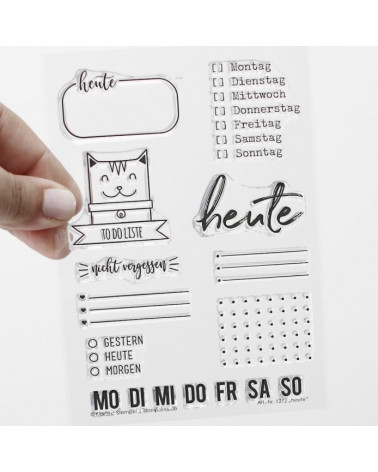 heute
[ ] Montag
[ ] Dienstag
[ ] Mittwoch
[ ] Donnerstag
[ ] Freitag
[ ] Samstag
[ ] Sonntag
TO DO LISTE
heute
nicht vergessen
GESTERN
HEUTE
MORGEN
MO DI MI DO FR SA SO
"heute"